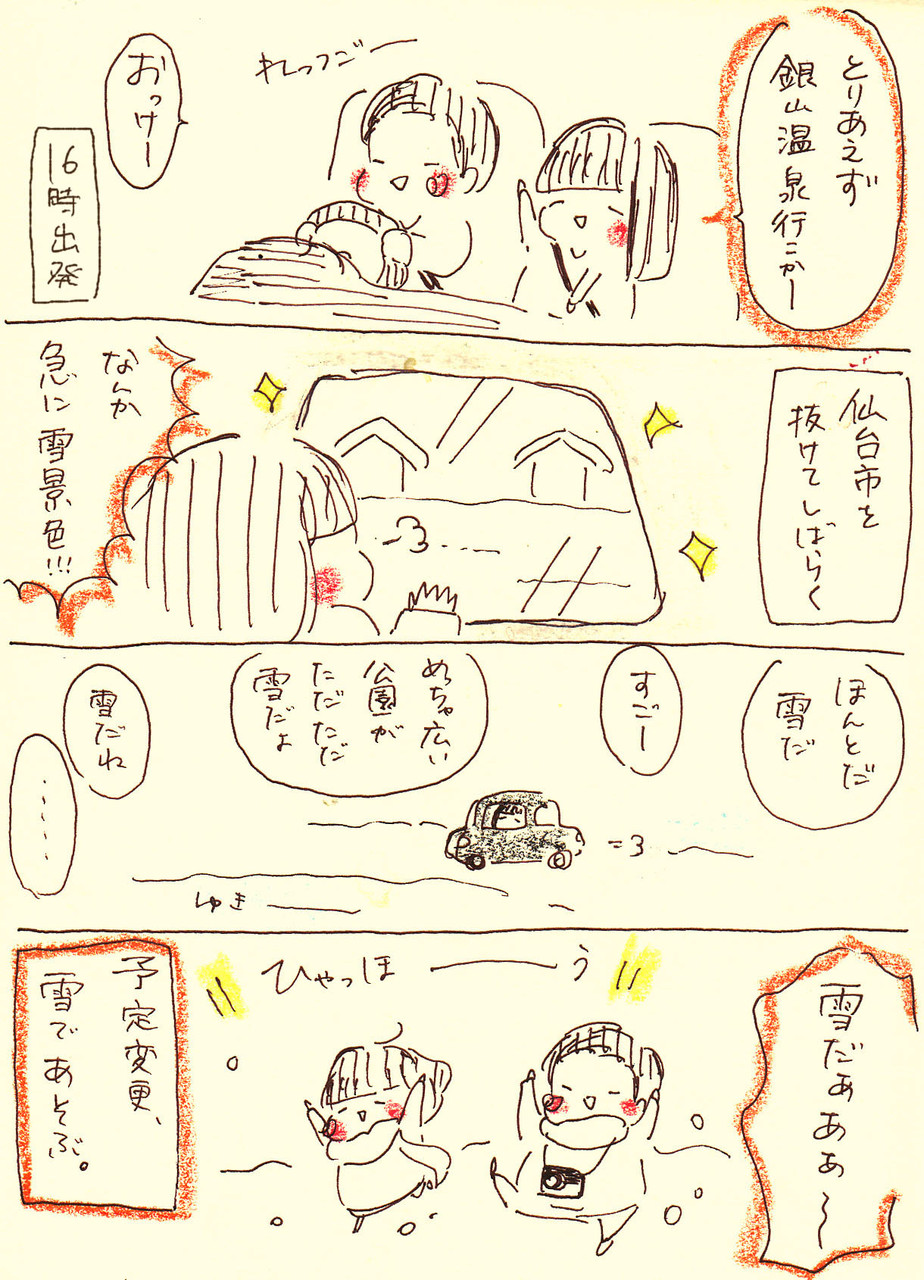 とりあえず
銀山温泉行こかー
れっつごー
おっけー
16時出発
仙台市を
抜けてしばらく
なんか
急に雪景色!!!
ほんとだ
雪だ
すごー
めっちゃ広い
公園が
ただただ
雪だよ
雪だね
……
ゆき
雪だぁぁぁ〜
ひゃっほーう
予定変更、
雪であそぶ。